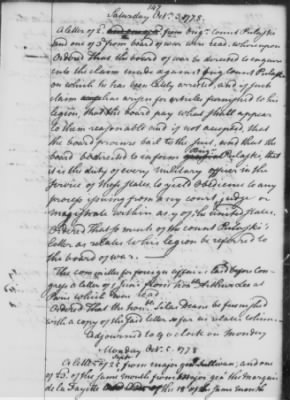 147
Saturday Oct. 3. 1778
A letter of 2 from Brig. Count Pulaski
and one of 3 from board of war were read, whereupon
Ordered That the board of war be directed to enquire
into the claim made against brig Count Pulaski
on which he has been lately arrested, and if such
claim has arisen for articles furnished to his
legion, that the board pay what shall appear
to them reasonable and if not accepted that
the board procure bail to the suit, and that the
board be directed to inform Brig. Pulaski, that
it is the duty of every military officer in the
service of these states to yield obedience to any
process issuing from any court judge or
magistrate within any of the United States.
Ordered That so much of the count Pulaski's
letter as relates to his legion be referred to
the board of war.
The committee for foreign affairs laid before Con-
gress a letter of June from hon. Arthur Lee at
Paris which was read
Ordered That the hon. Silas Deane be furnished
with a copy of the said letter so far as relates to him.
adjourned to 9 o Clock on Monday
Monday Oct. 5. 1778
A letter of 29 Sept from major gen Sullivan, and one
of 23 of the same month from major gen the marquis
de la Fayette of the 13 of the same month